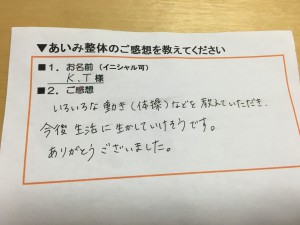 ▼あいみ整体のご感想を教えてください
■1．お名前（イニシャル可）
K.T 様
■2．ご感想
いろいろな動き（体操）などを教えていただき、
今後生活に生かしていけそうです。
ありがとうございました。